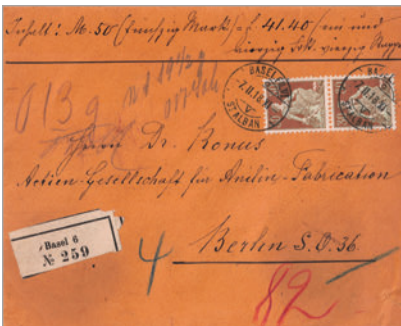 Inhalt: M. 50 (fünfzig Mark) = f. 41.40 (ein und
vierzig Frk. vierzig Rappen
013 g
BASEL
-7.II.16.
ST.ALBAN
Herrn Dr. Konus
Actien-Gesellschaft für Anilin-Fabrication
Basel 6
№ 259
4
Berlin S.O. 36.
82